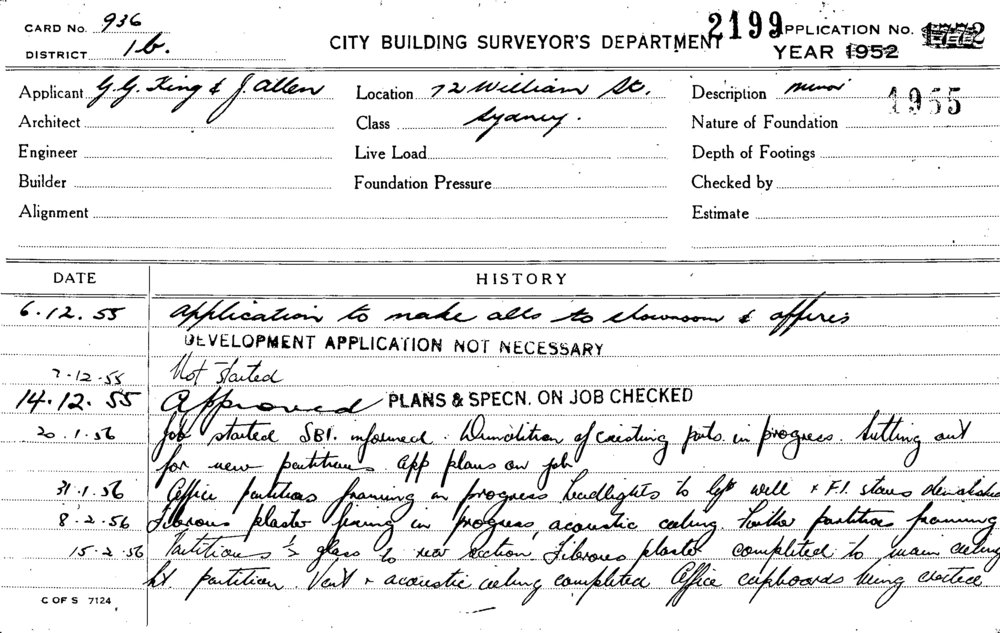 CARD No. 936
DISTRICT 1b.
CITY BUILDING SURVEYOR'S DEPARTMENT
2199 APPLICATION No. 1772
YEAR 1952
1955
Applicant G.G. King & J. Allen
Location 72 William St.
Description minor
Architect
Class Sydney.
Nature of Foundation
Engineer
Live Load
Depth of Footings
Builder
Foundation Pressure
Checked by
Alignment
Estimate
DATE HISTORY
6.12.55 Application to make alts to showroom & offices
DEVELOPMENT APPLICATION NOT NECESSARY
7.12.55 Not started
14.12.55 Approved PLANS & SPECN. ON JOB CHECKED
20.1.56 Job started SBI. informed. Demolition of existing parts. in progress. Setting out
for new partitions app plans on job
31.1.56 Office partitions framing in progress headlights to lift well & F.I. stairs demolished
8.2.56 Fibrous plaster fixing in progress, acoustic ceiling. Further partition framing
15.2.56 Partitions & glass to rear section, Fibrous plaster completed to main ceiling
ht partition Vent & acoustic ceiling completed Office cupboards being erected
C OF S 7124